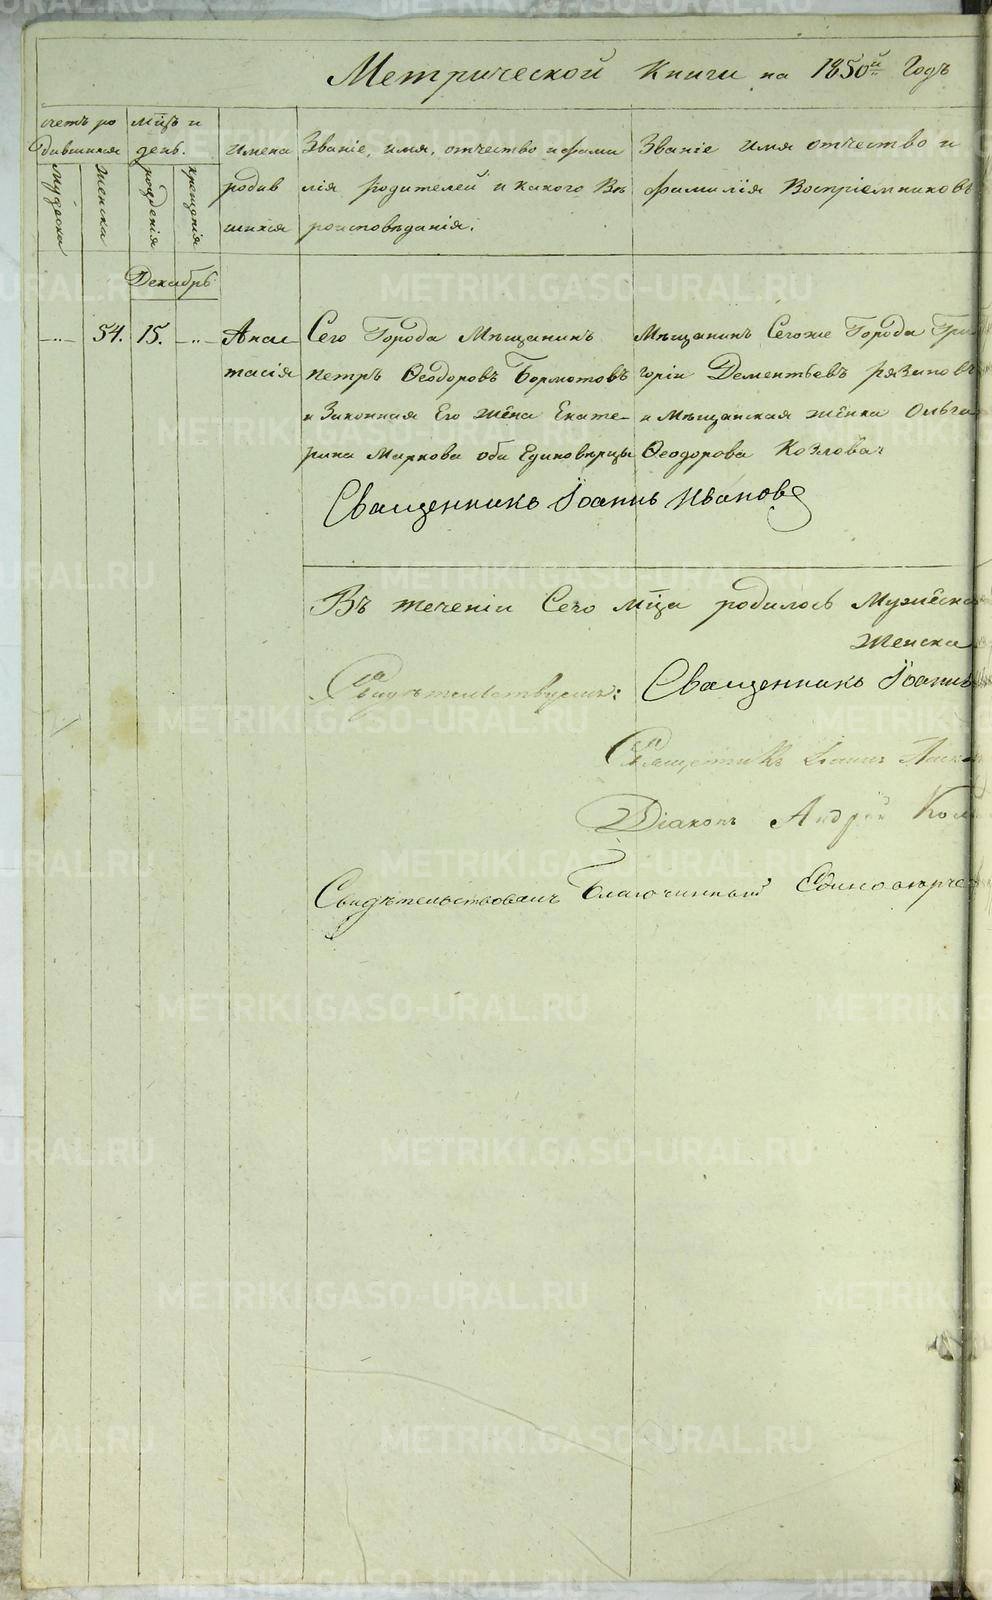 Метрической Книги на 1850й Годъ
счетъ ро
дившихся
мужеска
женска
мцъ и
день.
рожденія
крещенія
имена
родив
шихся
Званіе, имя, отчество и фами
лія родителей и какого Въ
роисповѣданія.
Званіе имя отчество и
фамилія Воспріемниковъ
Декабрь
54. 15.
Анас
тасія
Сего Города Мѣщанинъ
петръ Ѳеодоровъ Бормотовъ
и Законная Его жена Екате-
рина Маркова оба Единовѣрцы
Мѣщанинъ Сегоже Города Гри
горій Дементьевъ рязановъ
и Мѣщанская жёнка Ольга
Ѳеодорова Козлова
Священникъ Іоаннъ Ивановъ
Въ теченіи Сего мца родилось Мужеска
женска
Свидѣтельствуемъ: Священникъ Іоаннъ
Священникъ Іоаннъ
Діаконъ Андрей
Свидѣтельствовалъ Благочинный
METRIKI.GASO-URAL.RU